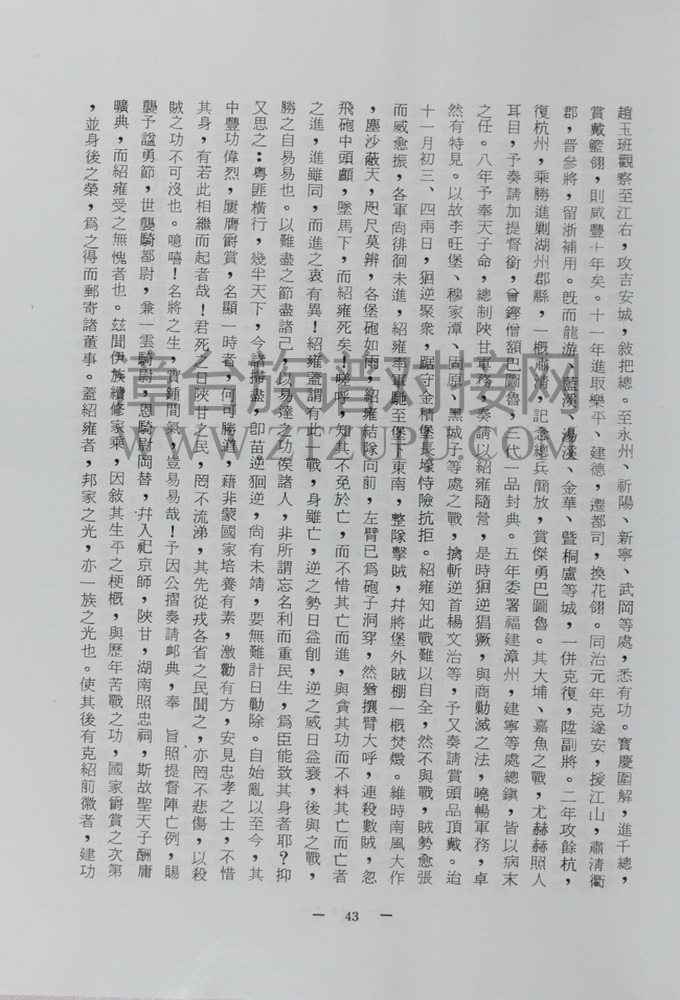 趙玉班觀察至江右,攻吉安城,敘把總。至永州、祈陽、新寧、武岡等處,悉有功。寶慶圍解,進千總,
賞戴籃翎,則咸豐十年矣。十一年進取樂平、建德,遷都司,換花翎。同治元年克遂安,援江山,肅淸衢
郡,晋參將,留浙補用。旣而龍游、藍溪、湯溪、金華、曁桐盧等城,一併克復,陞副將。二年攻餘杭,
復杭州,乘勝進剿湖州郡縣,一概肅淸,記念總兵簡放,賞傑勇巴圖魯。其大埔、嘉魚之戰,尤赫赫照人
耳目,予奏請加提督銜,曾鏗僧額巴圖魯,二代一品封典。五年委署福建漳州,建寧等處總鎭,皆以病未
之任。八年予奉天子命,總制陝甘軍務,奏請以紹雍隨營,是時狟逆猖獗,與商勦滅之法,曉暢軍務,卓
然有特見。以故李旺堡、穆家潭、固原、黑城子等處之戰,擒斬逆首楊文治等,予又奏請賞頭品頂戴。迨
十一月初三、四兩日,狟逆聚衆,踞守金積堡長壕恃險抗拒。紹雍知此戰難以自全,然不與戰,賊勢愈張
而威愈振,各軍尙徘徊未進,紹雍奉軍馳至堡之東南,整隊擊賊,幷將堡外賊棚一概焚燬。維時南風大作
,塵沙蔽天,咫尺莫辨,各堡砲如雨,紹雍結隊向前,左臂已爲砲子洞穿,然猶攘臂大呼,連殺數賊,忽
飛砲中頭顱,墜馬下,而紹雍死矣!嗟呼,知其不免於亡,而不惜其亡而進,與貪其功而不料其亡而亡者
之進,進雖同,而進之衷有異!紹雍蓋謂有此一戰,身雖亡,逆之勢日益創,逆之威日益衰,後與之戰,
勝之自易易也。以難盡之節盡諸己,以易達之功俟諸人,非所謂忘名利而重民生,爲臣能致其身者耶?抑
又思之:粤匪橫行,幾半天下,今諸掃盡,卽苗逆狟逆,尙有未靖,要無難計日勦除。自始亂以至今,其
中豐功偉烈,屢膺爵賞,名顯一時者,何可勝道,藉非蒙國家培養有素,激勸有方,安見忠孝之士,不惜
其身,有若此相繼而起者哉!君死之日陝甘之民,罔不流涕,其先從戎各省之民聞之,亦罔不悲傷,以殺
賊之功不可沒也。噫嘻!名將之生,實鍾間氣,豈易易哉!予因公摺奏請卹典,奉 旨照提督陣亡例,賜
襲予諡勇節,世襲騎都尉,兼一雲騎尉,恩騎尉罔替,幷入祀京師,陝甘,湖南照忠祠,斯故聖天子酬庸
曠典,而紹雍受之無愧者也。玆聞伊族續修家乘,因敘其生平之梗槪,與歷年苦戰之功,國家爵賞之次第
,並身後之榮,爲之得而郵寄諸董事。蓋紹雍者,邦家之光,亦一族之光也。使其後有克紹前徽者,建功
— 43 —
章台族谱对接网
WWW.ZTZUPU.COM